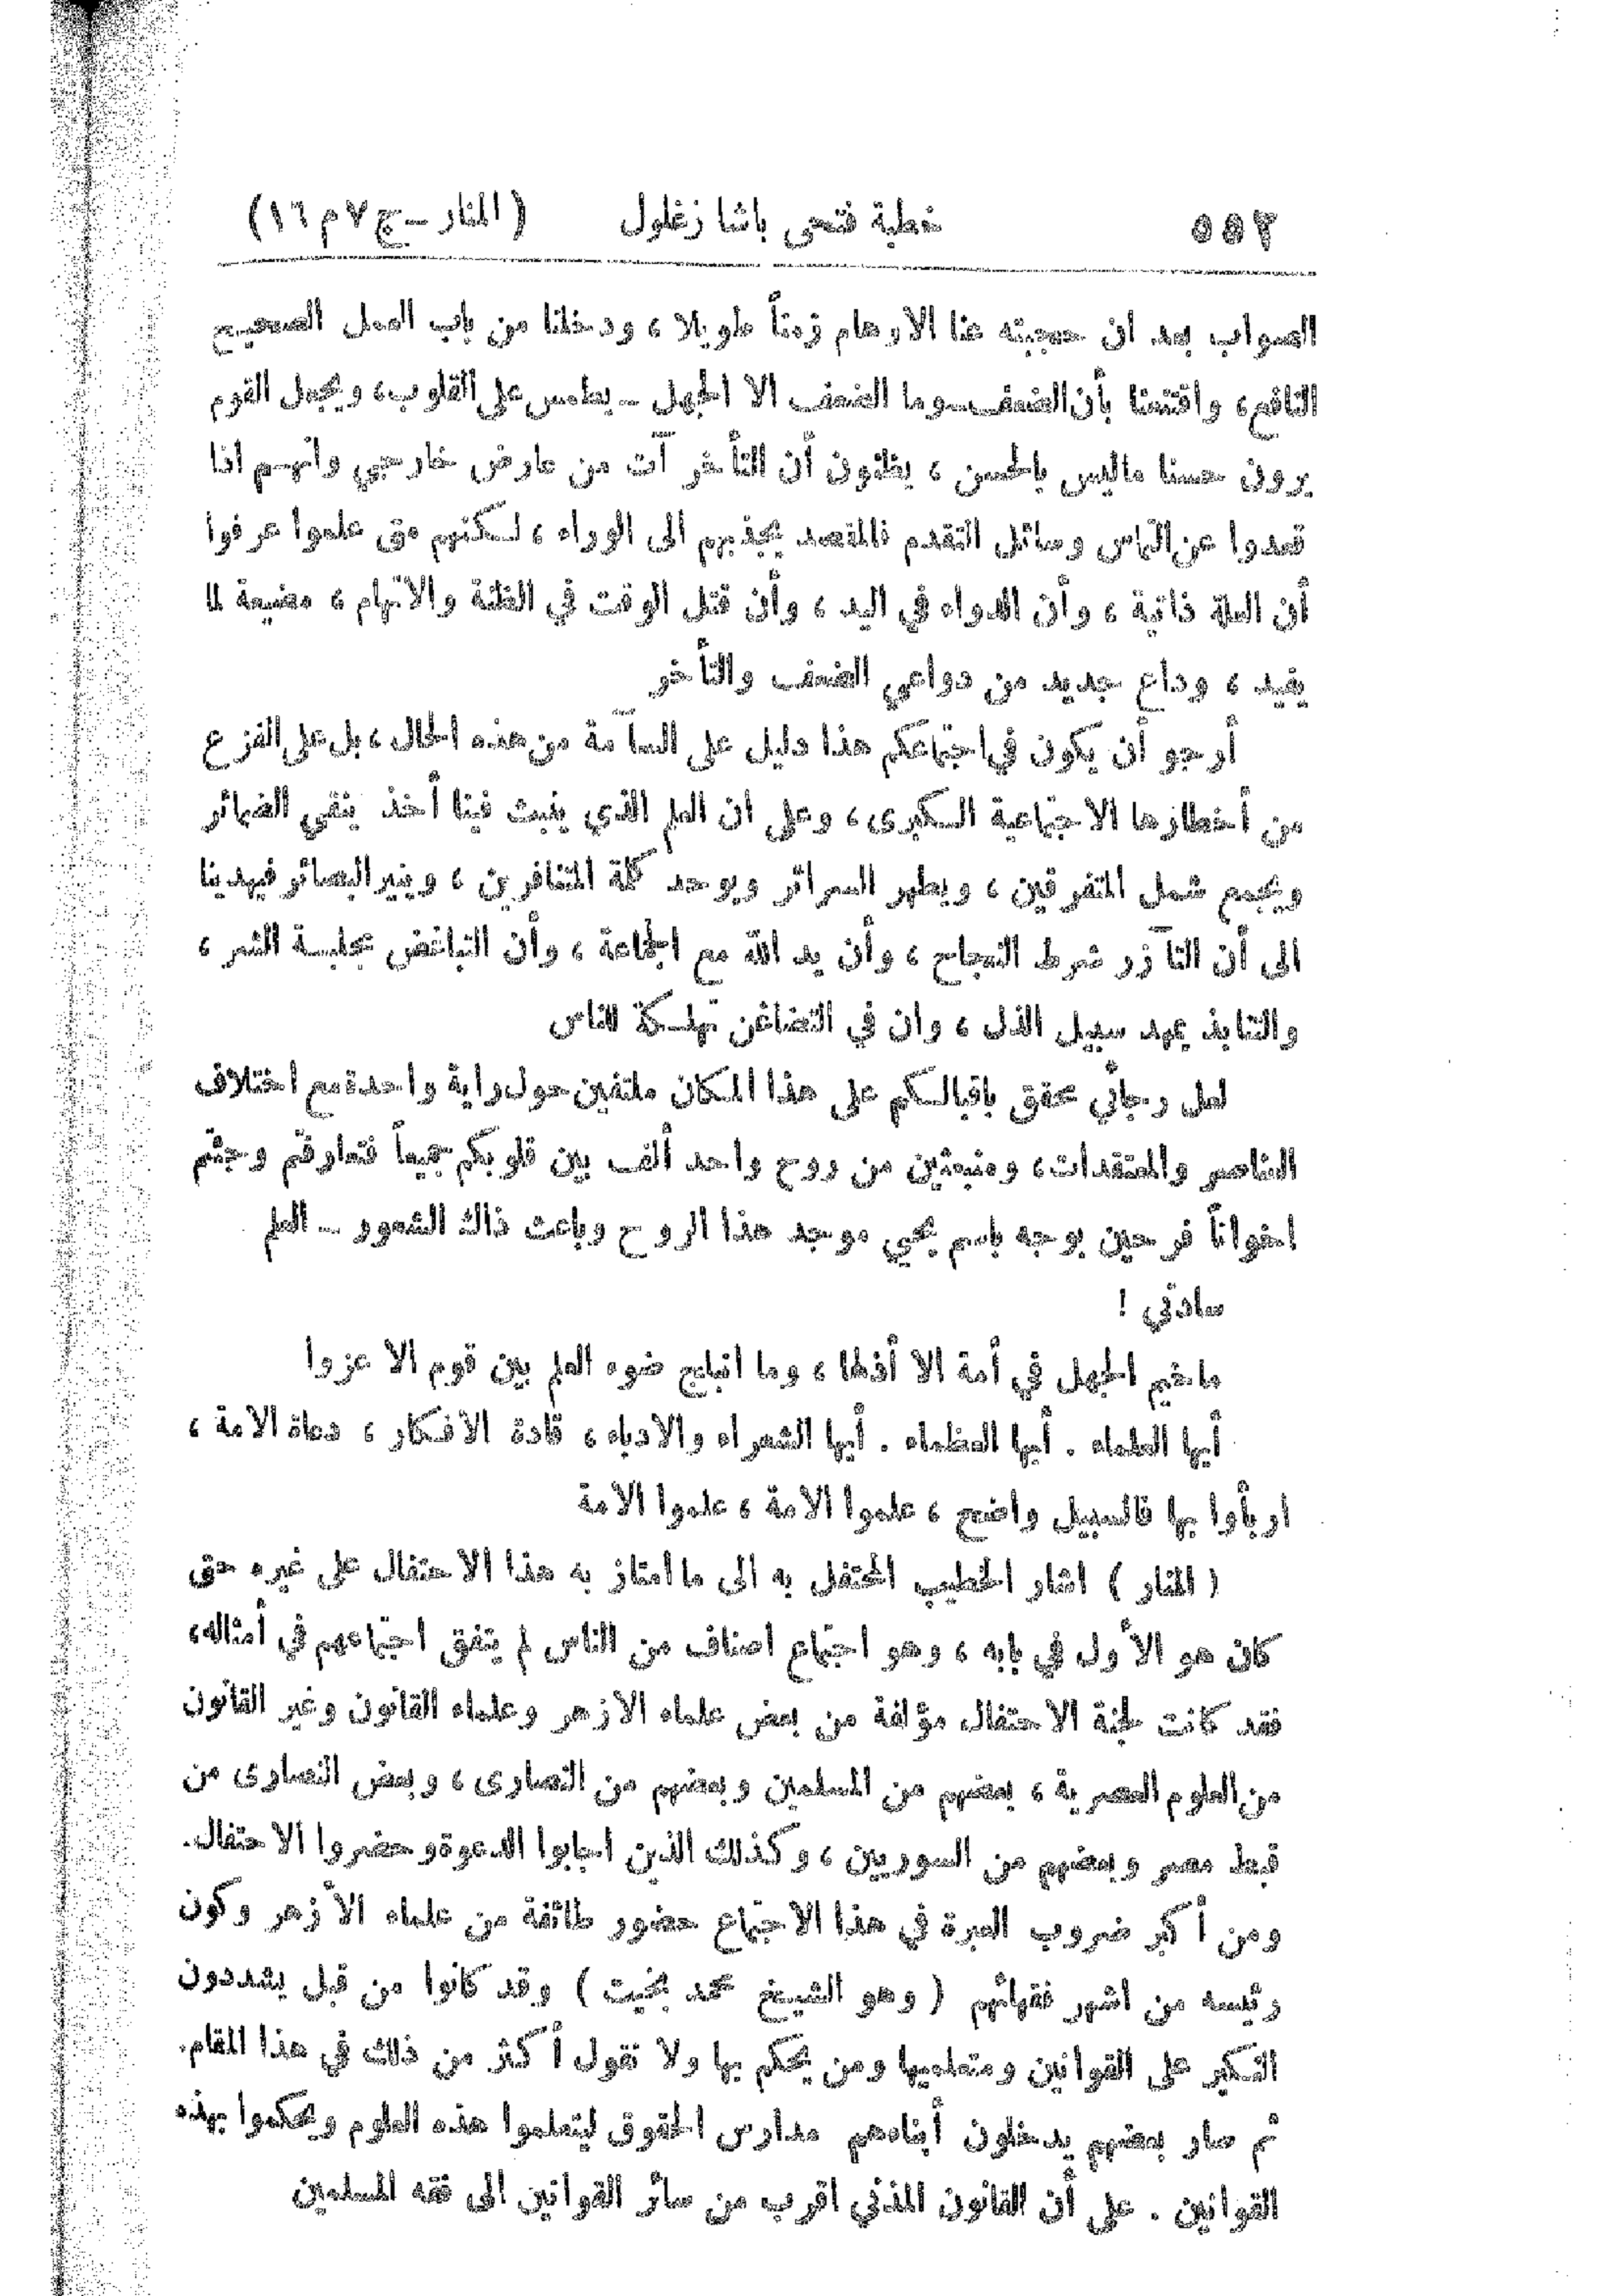 ٥٥٢ خطبة فتحى باشا زغلول (المنار – ج ٧ م ١٦)
الصواب بعد ان حجبته عنا الاوهام زمناً طويلا ، ودخلنا من باب العمل الصحيح
النافع، واقتنعنا بأن الضعف–وما الضعف الا الجهل – يطمس على القلوب، ويجعل القوم
يرون حسنا ماليس بالحسن ، يظنون أن التأخر آت من عارض خارجي وانهم اذا
قعدوا عن التماس وسائل التقدم فالمقصد يجذبهم الى الوراء ، لكنهم متى علموا عرفوا
أن العلة ذاتية ، وأن الدواء في اليد ، وأن قتل الوقت في الظنة والاتهام ، مضيعة لما
يفيد ، وداع جديد من دواعي الضعف والتأخر
أرجو أن يكون في اجتماعكم هذا دليل على السآمة من هذه الحال ، بل على الفزع
من أخطارها الاجتماعية الكبرى، وعلى ان العلم الذي ينبث فينا أخذ ينقي الضمائر
ويجمع شمل المتفرقين ، ويطهر السرائر ويوحد كلمة المتنافرين ، وينير البصائر فيهدينا
الى أن التآزر شرط النجاح ، وأن يد الله مع الجماعة ، وأن التباغض مجلبة الشر ،
والتنابذ يمهد سبيل الذل ، وان في التضاغن تهلكة للناس
لعل رجائي محقق باقبالكم على هذا المكان ملتفين حول راية واحدة مع اختلاف
العناصر والمعتقدات، ومنبعثين من روح واحد ألف بين قلوبكم جميعاً فتعارفتم وجئتم
اخواناً فرحين بوجه باسم يحيي موجد هذا الروح وباعث ذاك الشعور – العلم
سادتي !
ماخيم الجهل في أمة الا أذلها ، وما انبلج ضوء العلم بين قوم الا عزوا
أيها العلماء . أيها العظماء . أيها الشعراء والادباء ، قادة الافكار ، دعاة الامة ،
اربأوا بها فالسبيل واضح ، علموا الامة ، علموا الامة
( المنار ) اشار الخطيب المحتفل به الى ما امتاز به هذا الاحتفال على غيره حتى
كان هو الأول في بابه ، وهو اجتماع اصناف من الناس لم يتفق اجتماعهم في أمثاله،
فقد كانت لجنة الاحتفال مؤلفة من بعض علماء الازهر وعلماء القانون وغير القانون
من العلوم العصرية ، بعضهم من المسلمين وبعضهم من النصارى ، وبعض النصارى من
قبط مصر وبعضهم من السوريين ، وكذلك الذين اجابوا الدعوة وحضروا الاحتفال.
ومن أكبر ضروب العبرة في هذا الاجتماع حضور طائفة من علماء الأزهر وكون
رئيسه من اشهر فقهائهم ( وهو الشيخ محمد بخيت ) وقد كانوا من قبل يشددون
النكير على القوانين ومتعلميها ومن يحكم بها ولا نقول أكثر من ذلك في هذا المقام.
ثم صار بعضهم يدخلون أبناءهم مدارس الحقوق ليتعلموا هذه العلوم ويحكموا بهذه
القوانين . على أن القانون المدني اقرب من سائر القوانين الى فقه المسلمين